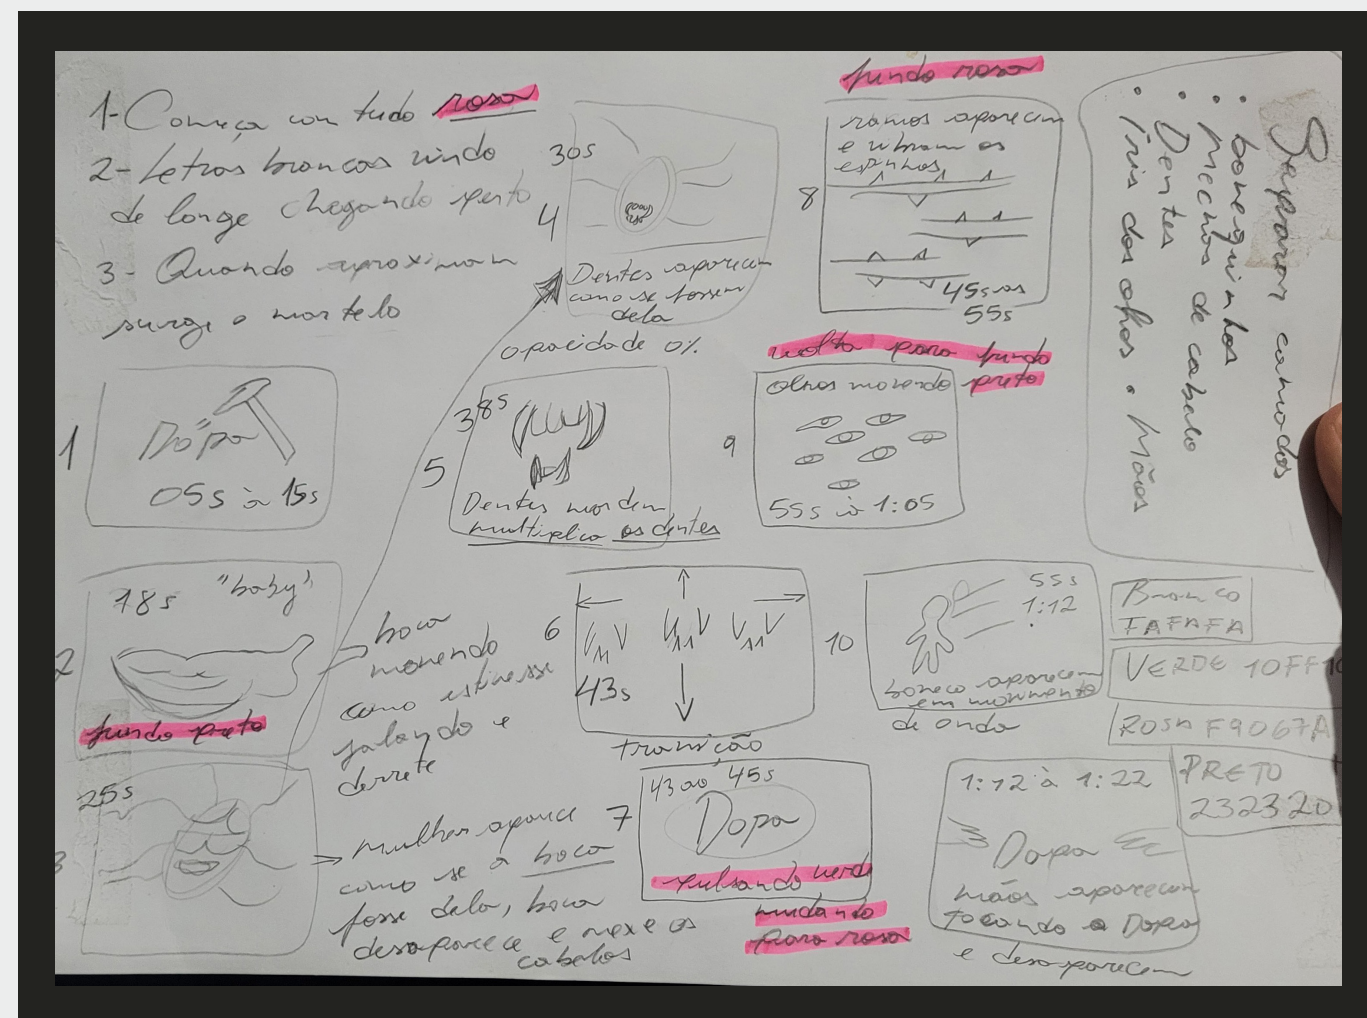 1- Começa com tudo rosa
2- Letras brancas vindo
de longe chegando perto
3- Quando aproximam
surge o martelo
1
Dopa
05s à 15s
2
18s "baby"
fundo preto
boca
movendo
como estivesse
falando e
derrete
3
25s
mulher aparece
como se a boca
fosse dela, boca
desaparece e mexe os
cabelos
30s
4
Dentes aparecem
como se fossem
dela
opacidade 0%
5
38s
Dentes mordem
multiplica os dentes
6
43s
transição
7
43 ao 45s
Dopa
pulsando verde
mudando
para rosa
fundo rosa
8
ramos aparecem
e vibram os
espinhos
45s aos
55s
volta para fundo
preto
9
olhos movendo
55s à 1:05
10
55s
1:12
boneco aparecem
em movimento
de onda
1:12 à 1:22
Dopa
mãos aparecem
tocando a Dopa
e desaparecem
Separar camadas
• bonequinhos
• mechas de cabelo
• Dentes
• Íris dos olhos • Mãos
Branco
FAFAFA
VERDE 10FF10
ROSA F9067A
PRETO
232320